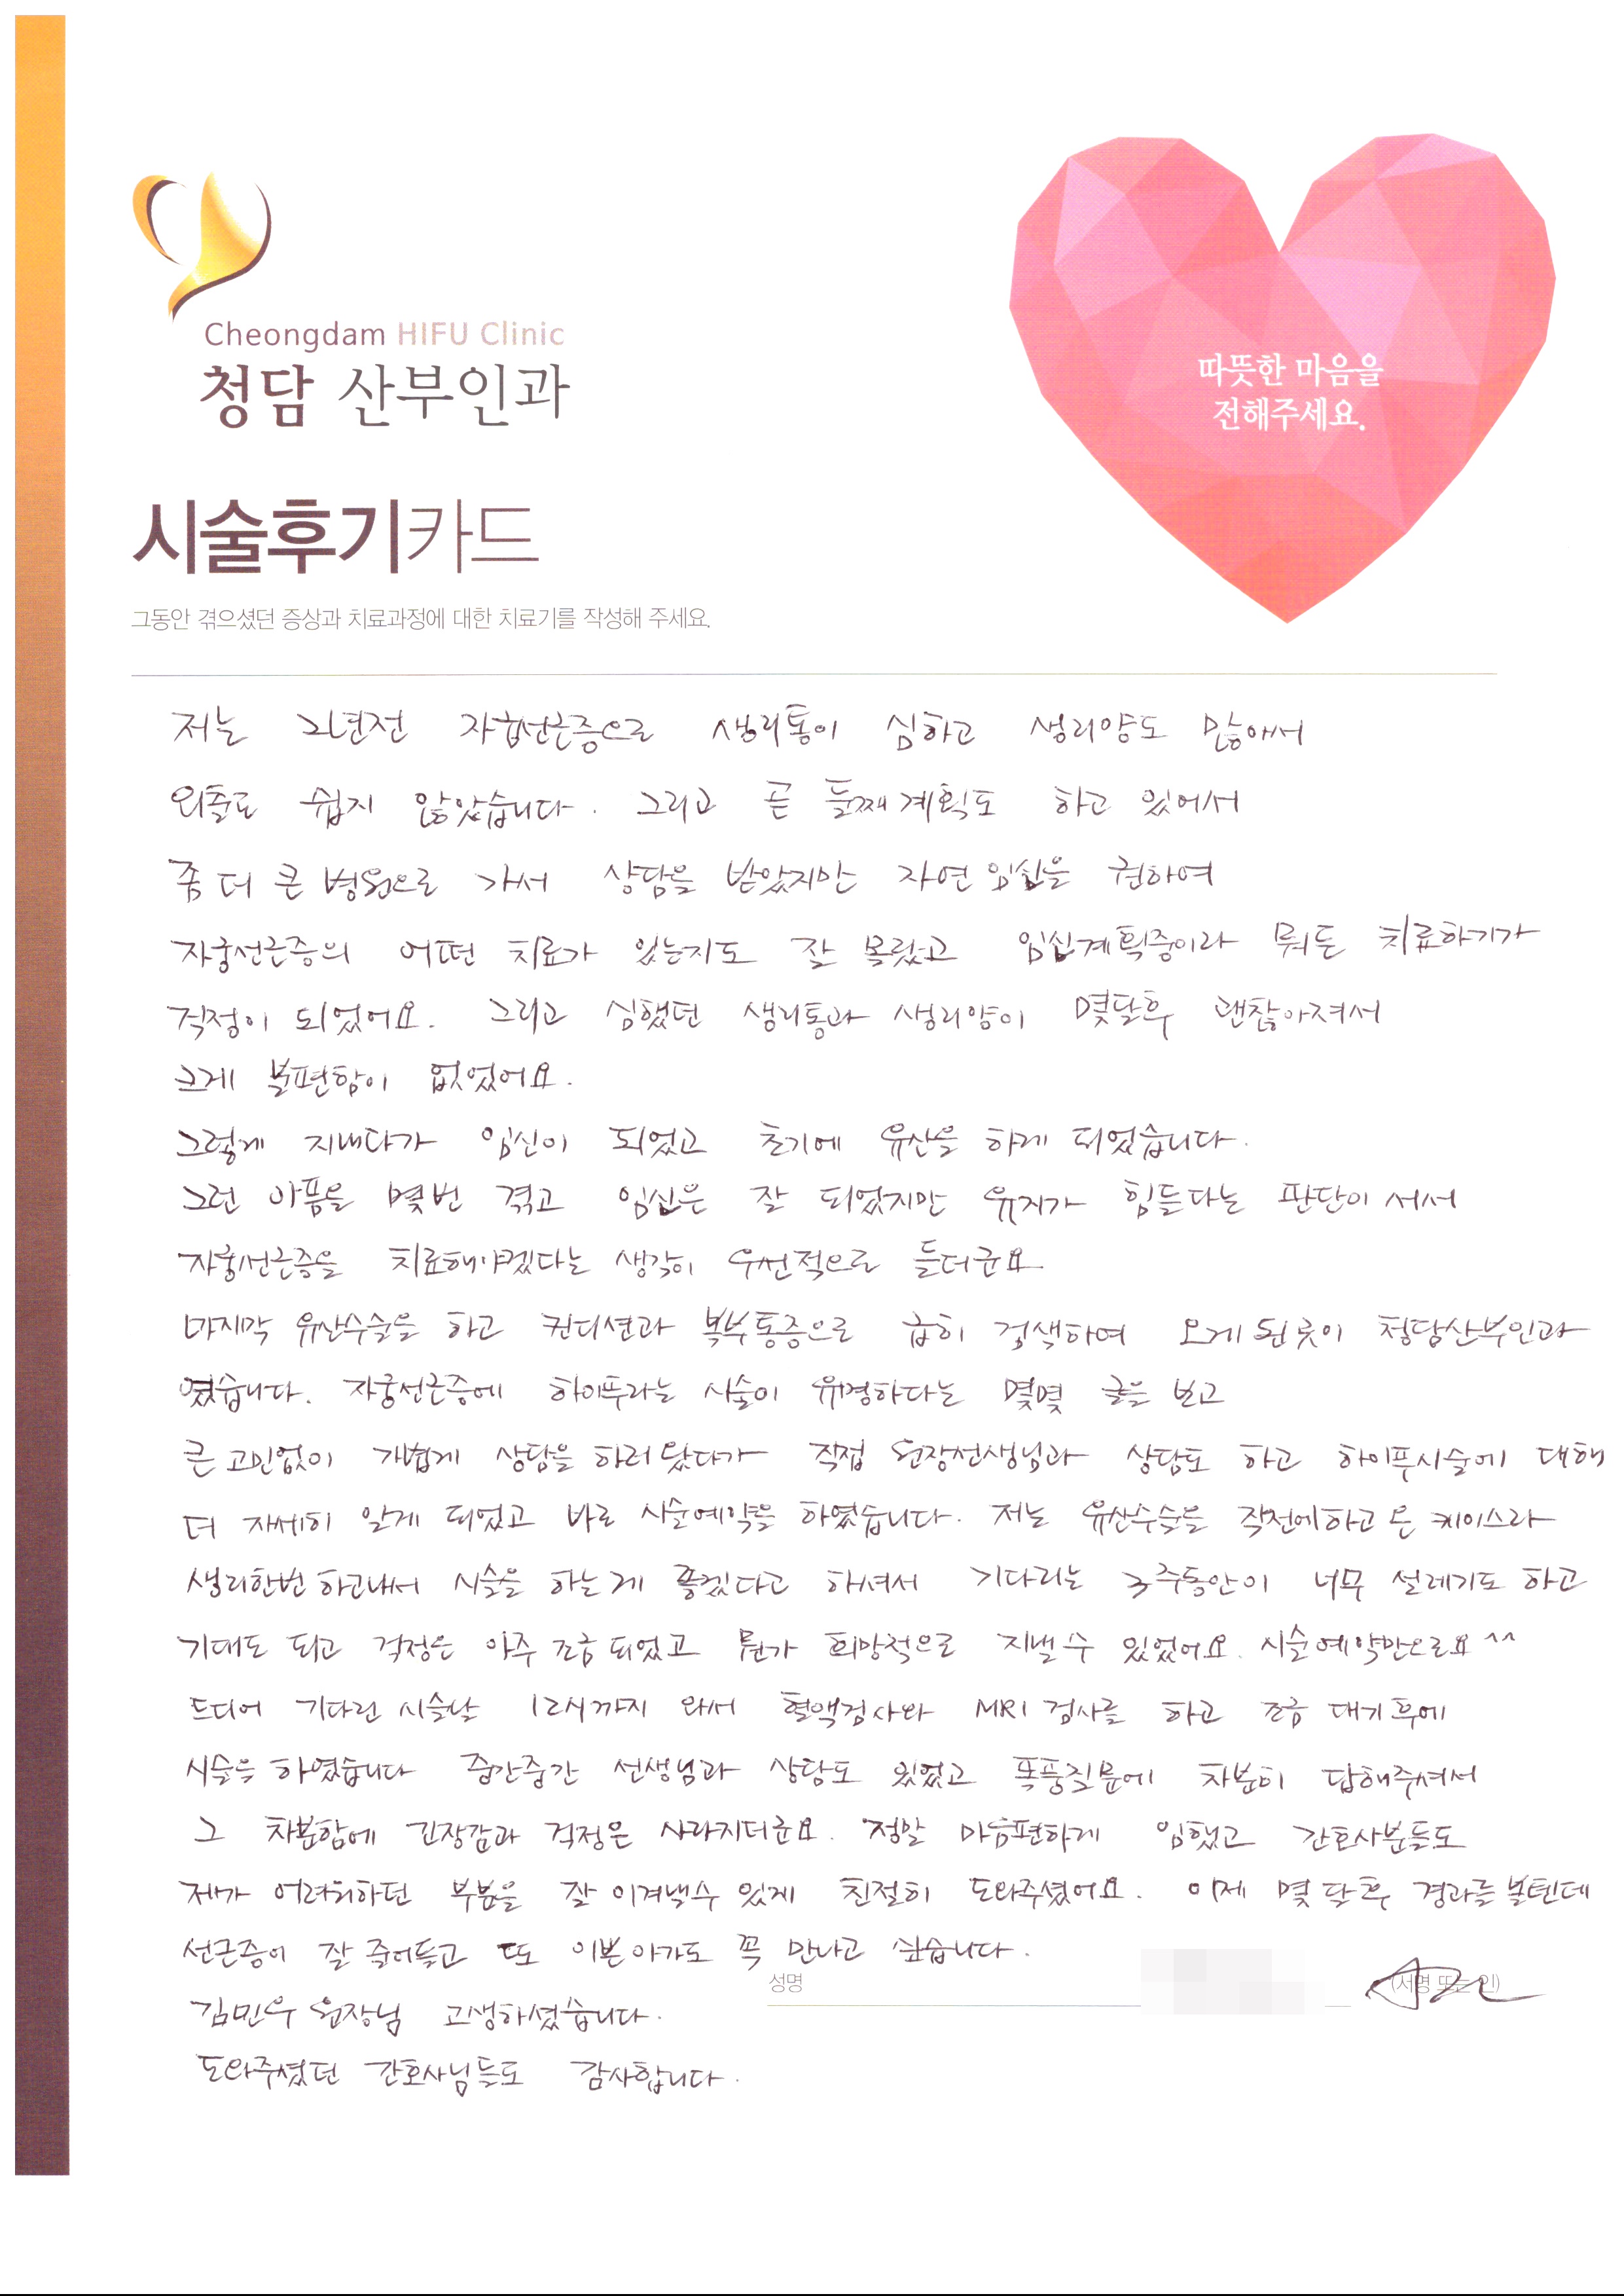 Cheongdam HIFU Clinic
청담 산부인과
따뜻한 마음을
전해주세요.
시술후기카드
그동안 겪으셨던 증상과 치료과정에 대한 치료기를 작성해 주세요.
저는 2년전 자궁선근증으로 생리통이 심하고 생리양도 많아서
외출도 쉽지 않았습니다. 그리고 곧 둘째계획도 하고 있어서
좀 더 큰 병원으로 가서 상담을 받았지만 자연임신을 권하여
자궁선근증의 어떤 치료가 있는지도 잘 몰랐고 임신계획중이라 뭐든 치료하기가
걱정이 되었어요. 그리고 심했던 생리통과 생리양이 몇달후 괜찮아져서
크게 불편함이 없었어요.
그렇게 지내다가 임신이 되었고 초기에 유산을 하게 되었습니다.
그런 아픔을 몇번 겪고 임신은 잘 되었지만 유지가 힘들다는 판단이 서서
자궁선근증을 치료해야겠다는 생각이 우선적으로 들더군요
마지막 유산수술을 하고 컨디션과 복부통증으로 급히 검색하여 오게된곳이 청담산부인과
였습니다. 자궁선근증에 하이푸라는 시술이 유명하다는 몇몇 글을 보고
큰 고민없이 가볍게 상담을 하러왔다가 직접 원장선생님과 상담도 하고 하이푸시술에 대해
더 자세히 알게 되었고 바로 시술예약을 하였습니다. 저는 유산수술을 직전에하고 온 케이스라
생리한번 하고나서 시술을 하는게 좋겠다고 하셔서 기다리는 3주동안이 너무 설레기도 하고
기대도 되고 걱정은 아주 조금 되었고 뭔가 희망적으로 지낼수 있었어요. 시술예약만으로요^^
드디어 기다린 시술날 12시까지 와서 혈액검사와 MRI 검사를 하고 조금 대기후에
시술을 하였습니다 중간중간 선생님과 상담도 있었고 폭풍질문에 차분히 답해주셔서
그 차분함에 긴장감과 걱정은 사라지더군요. 정말 마음편하게 임했고 간호사분들도
제가 어려워하던 부분을 잘 이겨낼수 있게 친절히 도와주셨어요. 이제 몇달후 경과를 볼텐데
선근증이 잘 줄어들고 또 이쁜아가도 꼭 만나고 싶습니다.
성명 (서명 또는 인)
김민우 원장님 고생하셨습니다.
도와주셨던 간호사님들도 감사합니다.